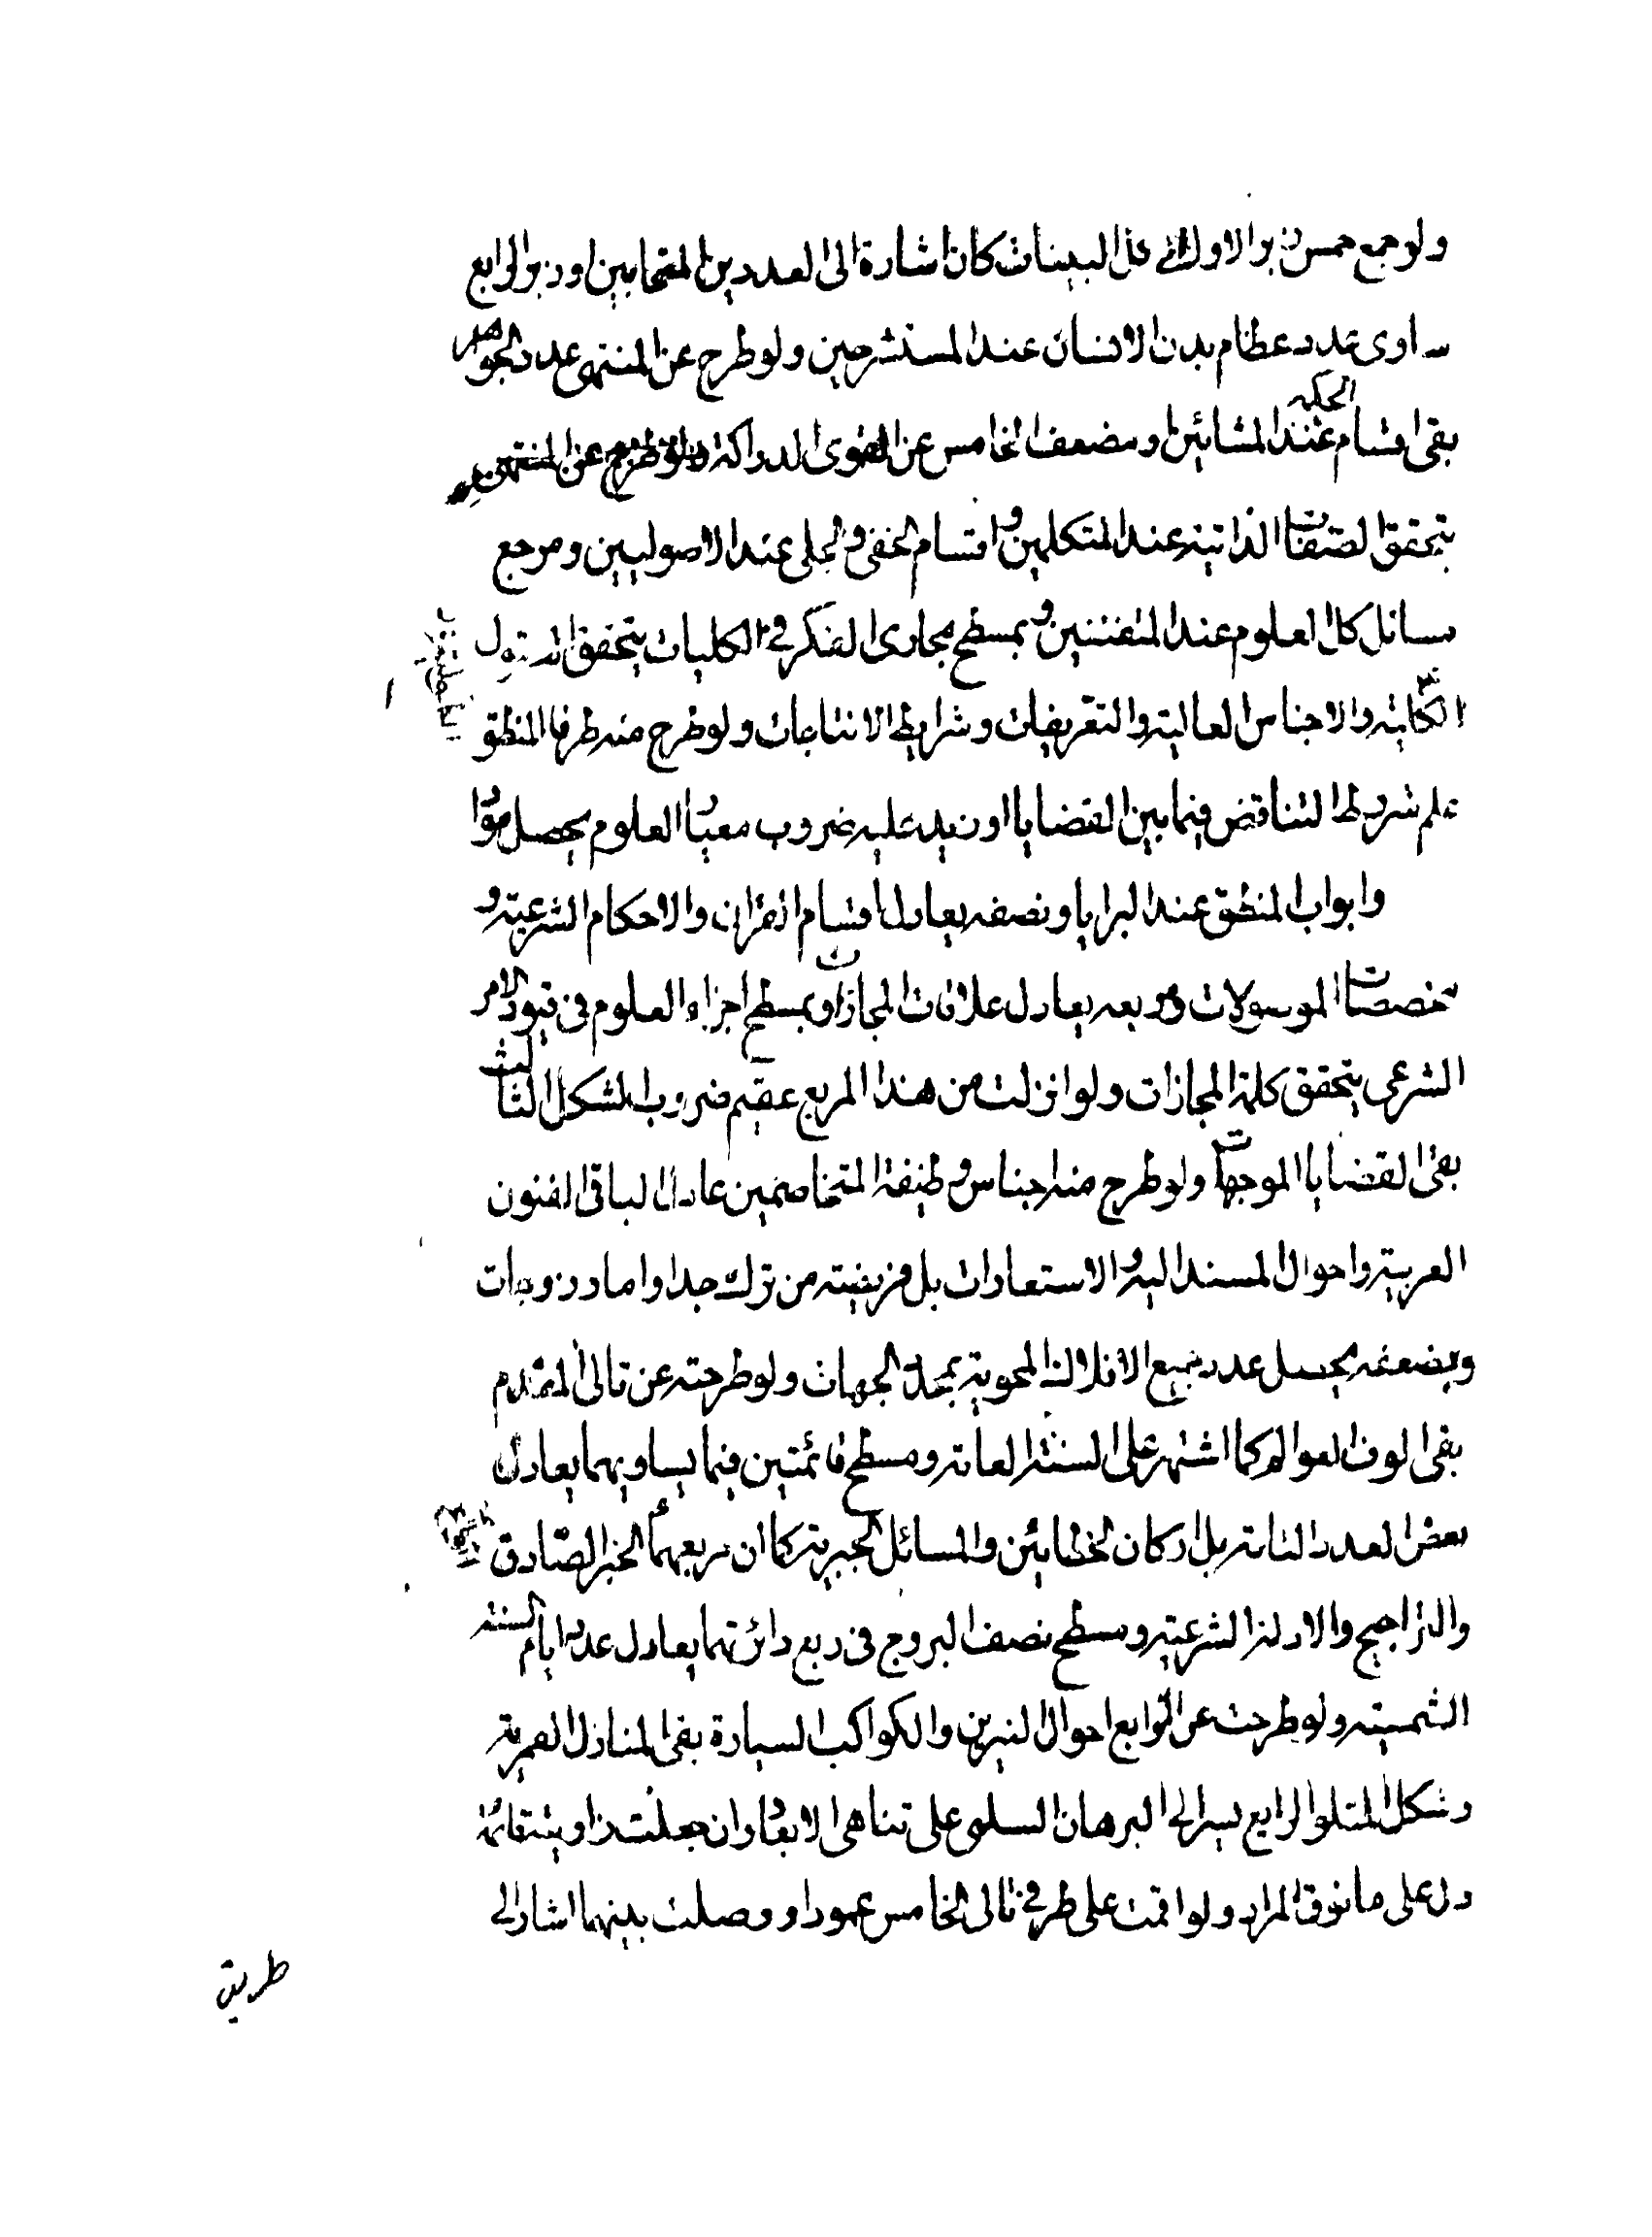 ولو جمع خمس زبر الاول الى البينات كان اشارة الى العددين المتحابين او زبر الرابع
ساوى عدد عظام بدن الانسان عند المستشرحين ولو طرح عن المنتهى عدد الجواهر
بقى اقسام الحكمة عند المشائين ومضعف الخامس عن القوى الدراكة ولو طرح عن المنتهى
يتحقق الصفات الذاتية عند المتكلمين و اقسام الخفى و الجلى عند الاصوليين ومرجع
مسائل كل العلوم عند المتفننين و بمسطح مجارى الفكر فى الكليات يتحقق
الكتابة والاجناس العالية والتعريفات وشرايط الانتاجات ولو طرح منه طرفا المنطق
علم شروط التناقض فيما بين القضايا او نزيد عليه ضروب معيار العلوم يحصل مواد
وابواب المنطق عند البرايا ونصفه يعادل اقسام القران والاحكام الشرعية و
مخصصات الموسولات ومربعه يعادل علاقات المجازات وبمسطح اجزاء العلوم فى قيود الامر
الشرعى يتحقق كلمة المجازات ولو انزلت من هذا المربع عقيم ضروب الشكل الثالث
بقى القضايا الموجهات ولو طرح منه اجناس وظيفة المتخاصمين عادل الباقى الفنون
العربية واحوال المسند اليه و الاستعارات بل فريضته من ترك جدا واما وزوجات
وبضعفه يحصل عدد جميع الافلاك المحوية بمحدد الجهات ولو طرحته عن تالى المتقدم
بقى الوف العوالم كما اشتهر على السنة العامة ومسطح قائمتين فيما يساويهما يعادل
بعض العدد التامة بل اركان الخطايئن والمسائل الجبرية كما ان مربعهما الخبر الصادق
والتراجيح والادلة الشرعية ومسطح نصف البروج فى ربع دائرتهما يعادل عدد ايام السنة
الشمسية ولو طرحت عن الرابع احوال النيرين والكواكب السيارة بقى المنازل القمرية
وشكل المتلو الرابع يسر الى البرهان السلمى على تناهى الابعاد وان جعلت زاويته قائمة
دل على ما فوق المراد ولو اقمت على طرفى تالى الخامس عمودا ووصلت بينهما اشار الى
طريق